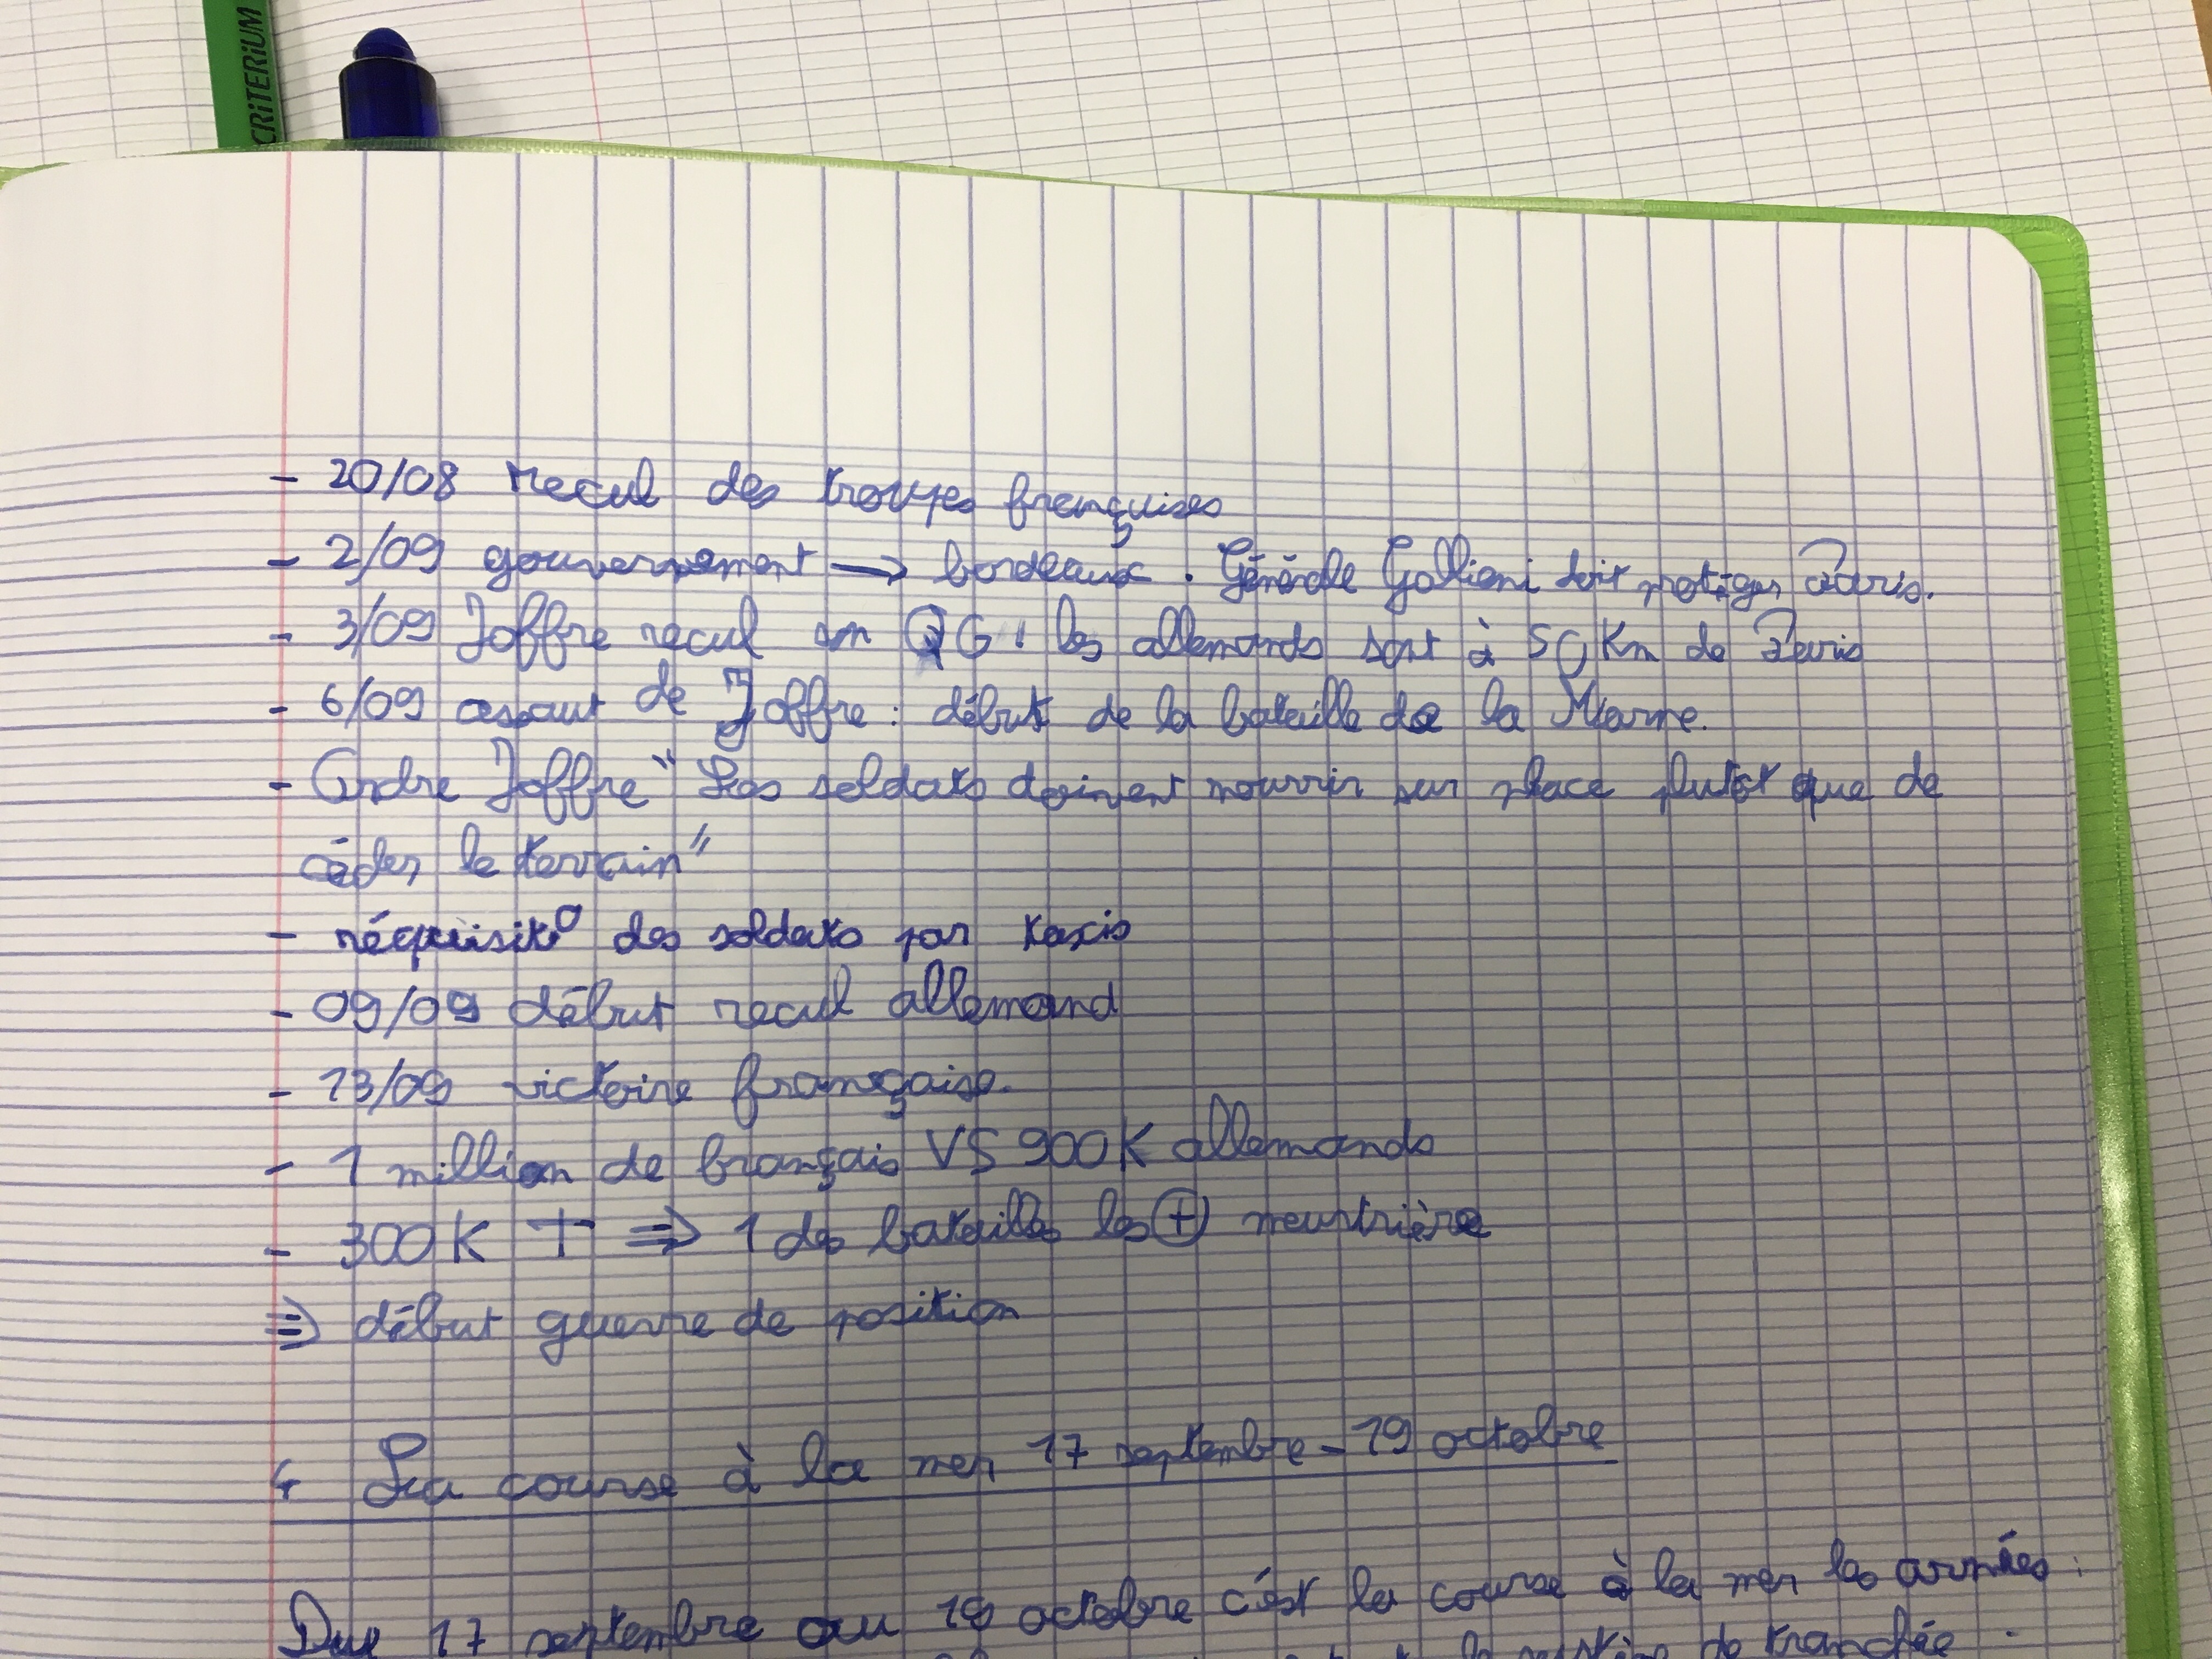 CRiTERiUM
- 20/08 recul des troupes françaises
- 2/09 gouvernement → bordeaux. Générale Gallieni doit protéger Paris.
- 3/09 Joffre recul son QG : les allemands sont à 50 Km de Paris
- 6/09 assaut de Joffre : début de la bataille de la Marne.
- Ordre Joffre " Les soldats doivent mourrir sur place plutôt que de
céder le terrain"
- réquisit° des soldats par taxis
- 09/09 début recul allemand
- 13/09 victoire française.
- 1 million de français VS 900K allemands
- 300K † ⇒ 1 des batailles les ⊕ meurtrière
⇒ début guerre de position
4 La course à la mer 17 septembre - 19 octobre
Du 17 septembre au 19 octobre c'est la course à la mer les armées
de tranchée.